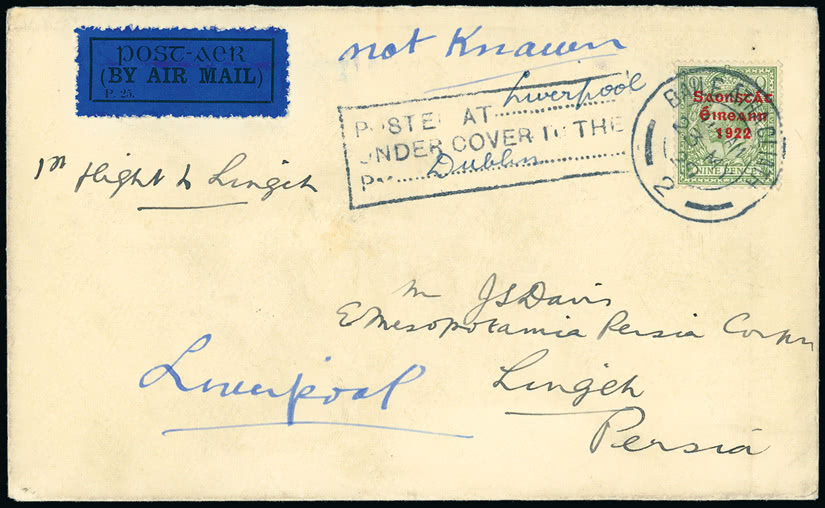 POST-AER
(BY AIR MAIL)
P. 25.
not Knawen
POSTED AT Liverpool
UNDER COVER TO THE
Dublin
Saorstát
Éireann
1922
NINE PENCE
BAILE ÁTHA CLIATH
1st flight to Lingeh
Mr JS Davis
E Mesopotamia Persia Corpn
Lingeh
Persia
Liverpool